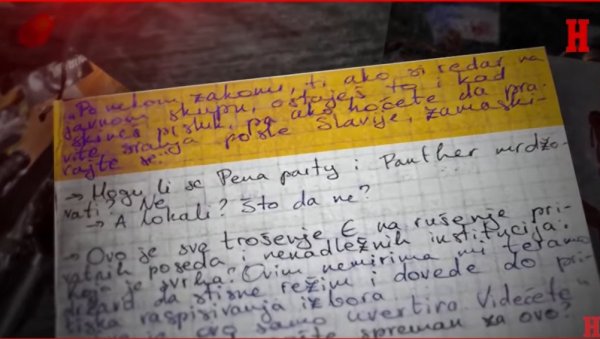 H
„Po nekom zakonu, ti, ako si redar na
javnom skupu, ostaješ to i kad
skineš prsluk, pa ako hoćete da pra-
vite sranja posle Slavije, zamaski-
rajte se.
→ Mogu li se Pena party i Panther
vati? Ne
→ A lokali? Što da ne?
→ Ovo je sve trošenje € na rušenje pri-
vatnih poseda i nenadležnih institucija.
koja je svrha? Ovim nemirima mi teramo
državu da stisne režim i dovede do pri-
tiska raspisivanja izbora
ovo samo uvertira. Videćete"
spreman za ovo?
H
H